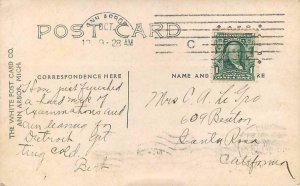 POST CARD
ANN ARBOR
OCT
12 9-28 AM
C
CORRESPONDENCE HERE
NAME AND
HERE
THE WHITE POST CARD CO.
ANN ARBOR, MICH.
Have just finished
a hard week of
Examinations and
am leaving for
Detroit. Get
ting cold.
Bert
Mrs C. A. Le Gro
609 Benton
Santa Rosa
California